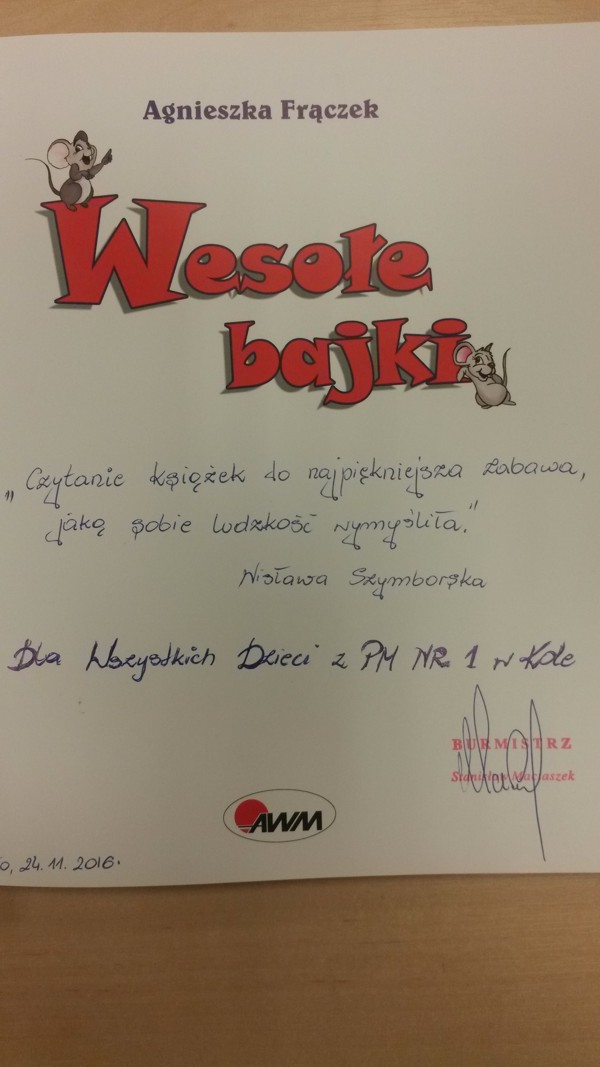 Agnieszka Frączek
Wesołe
bajki
„Czytanie książek to najpiękniejsza zabawa,
jaką sobie ludzkość wymyśliła."
Wisława Szymborska
Dla Wszystkich Dzieci z PM NR 1 w Kole
BURMISTRZ
Stanisław Maciaszek
AWM
o, 24.11.2016.